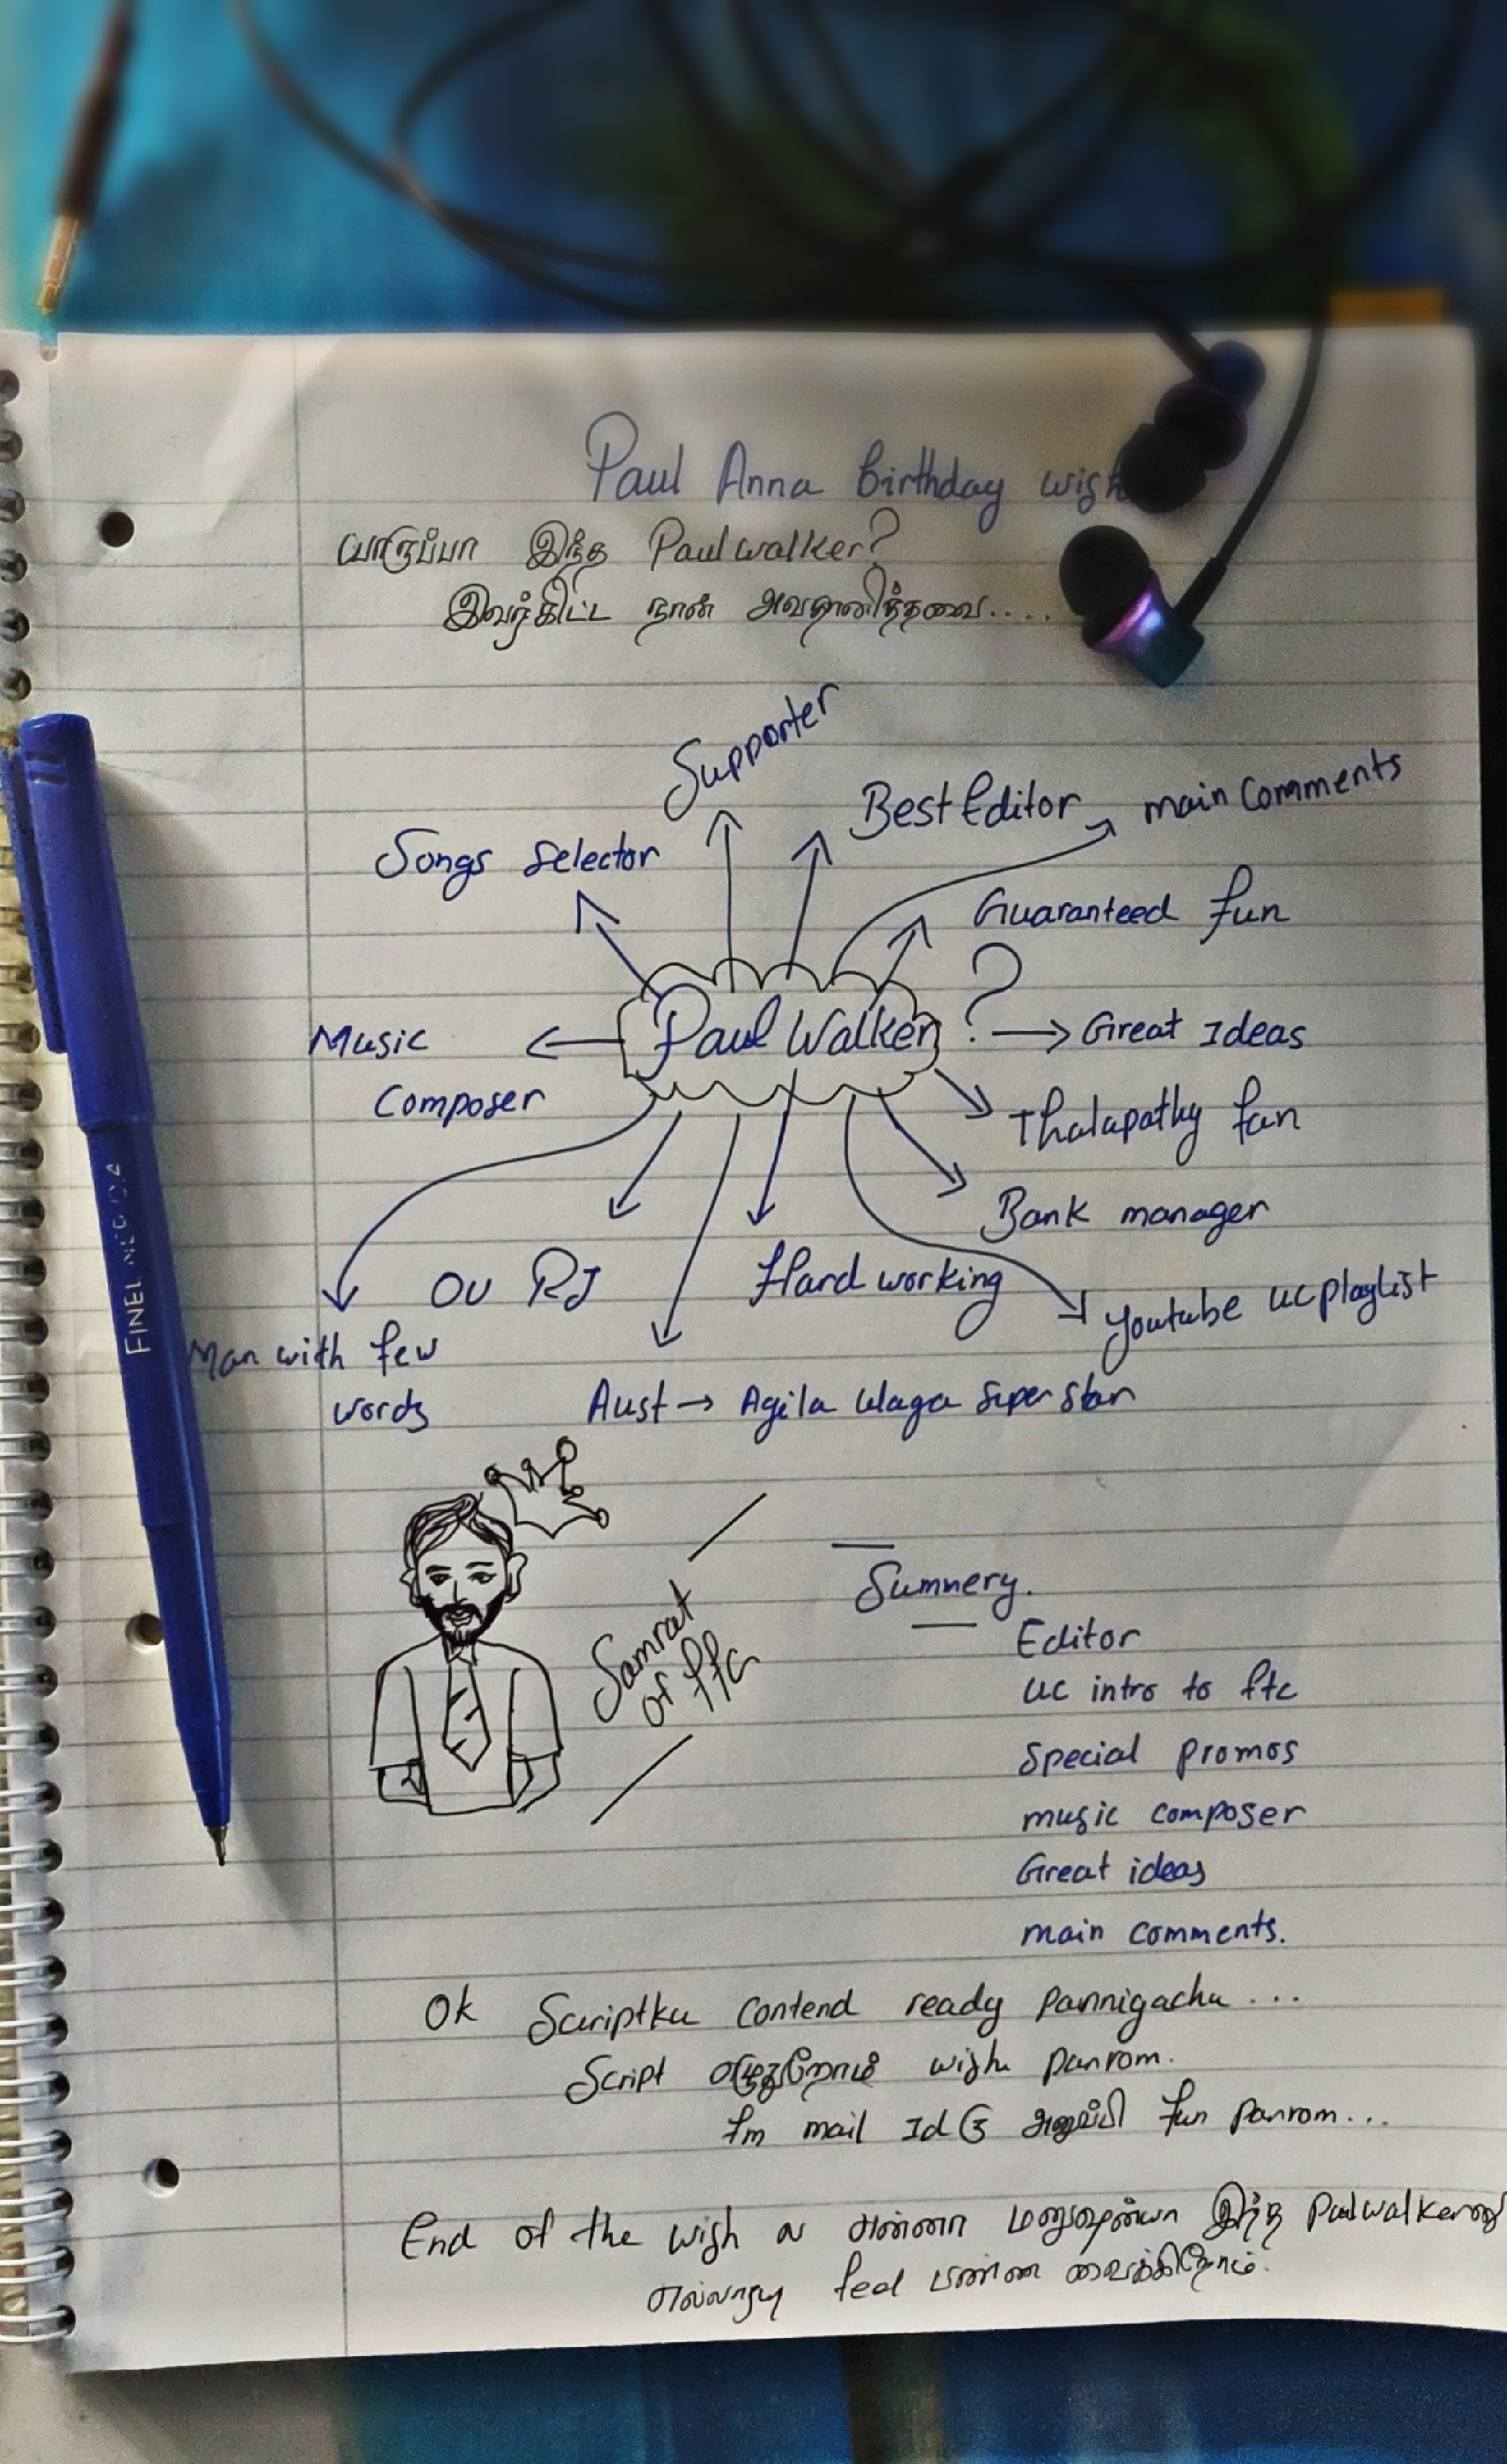 Paul Anna Birthday wish
யாருப்பா இந்த Paul walker?
இவர்கிட்ட நான் அவதானித்தவை....
Supporter
Best Editor
main Comments
Songs Selector
Guaranteed fun
Paul Walker ?
Great Ideas
Music
Composer
Thalapathy fan
Bank manager
OU RJ
Hard working
Youtube UC playlist
Man with few
words
Aust → Agila Ulaga Super Star
Samrat
of ffc
Summery.
Editor
UC intro to ftc
Special promos
music composer
Great ideas
main comments.
Ok Scriptku Contend ready Pannigachu ...
Script எழுதுறோம் wish panrom.
fm mail Id கு அனுப்பி fun panrom...
End of the wish ல என்னா மனுஷன்யா இந்த Paulwalkernu
எல்லாரயு feel பண்ண வைக்கிறோம்.
FINEL